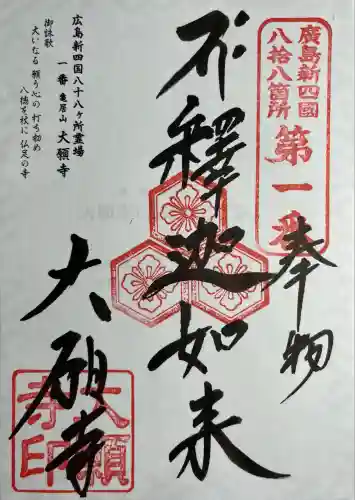 廣島新四國
八拾八箇所
第一番
奉拝
釋迦如来
大願寺
大願
寺印
広島新四国八十八ヶ所霊場
一番 亀居山 大願寺
御詠歌
大いなる 願う心の 打ち初め
八幡を杖に 仏足の寺